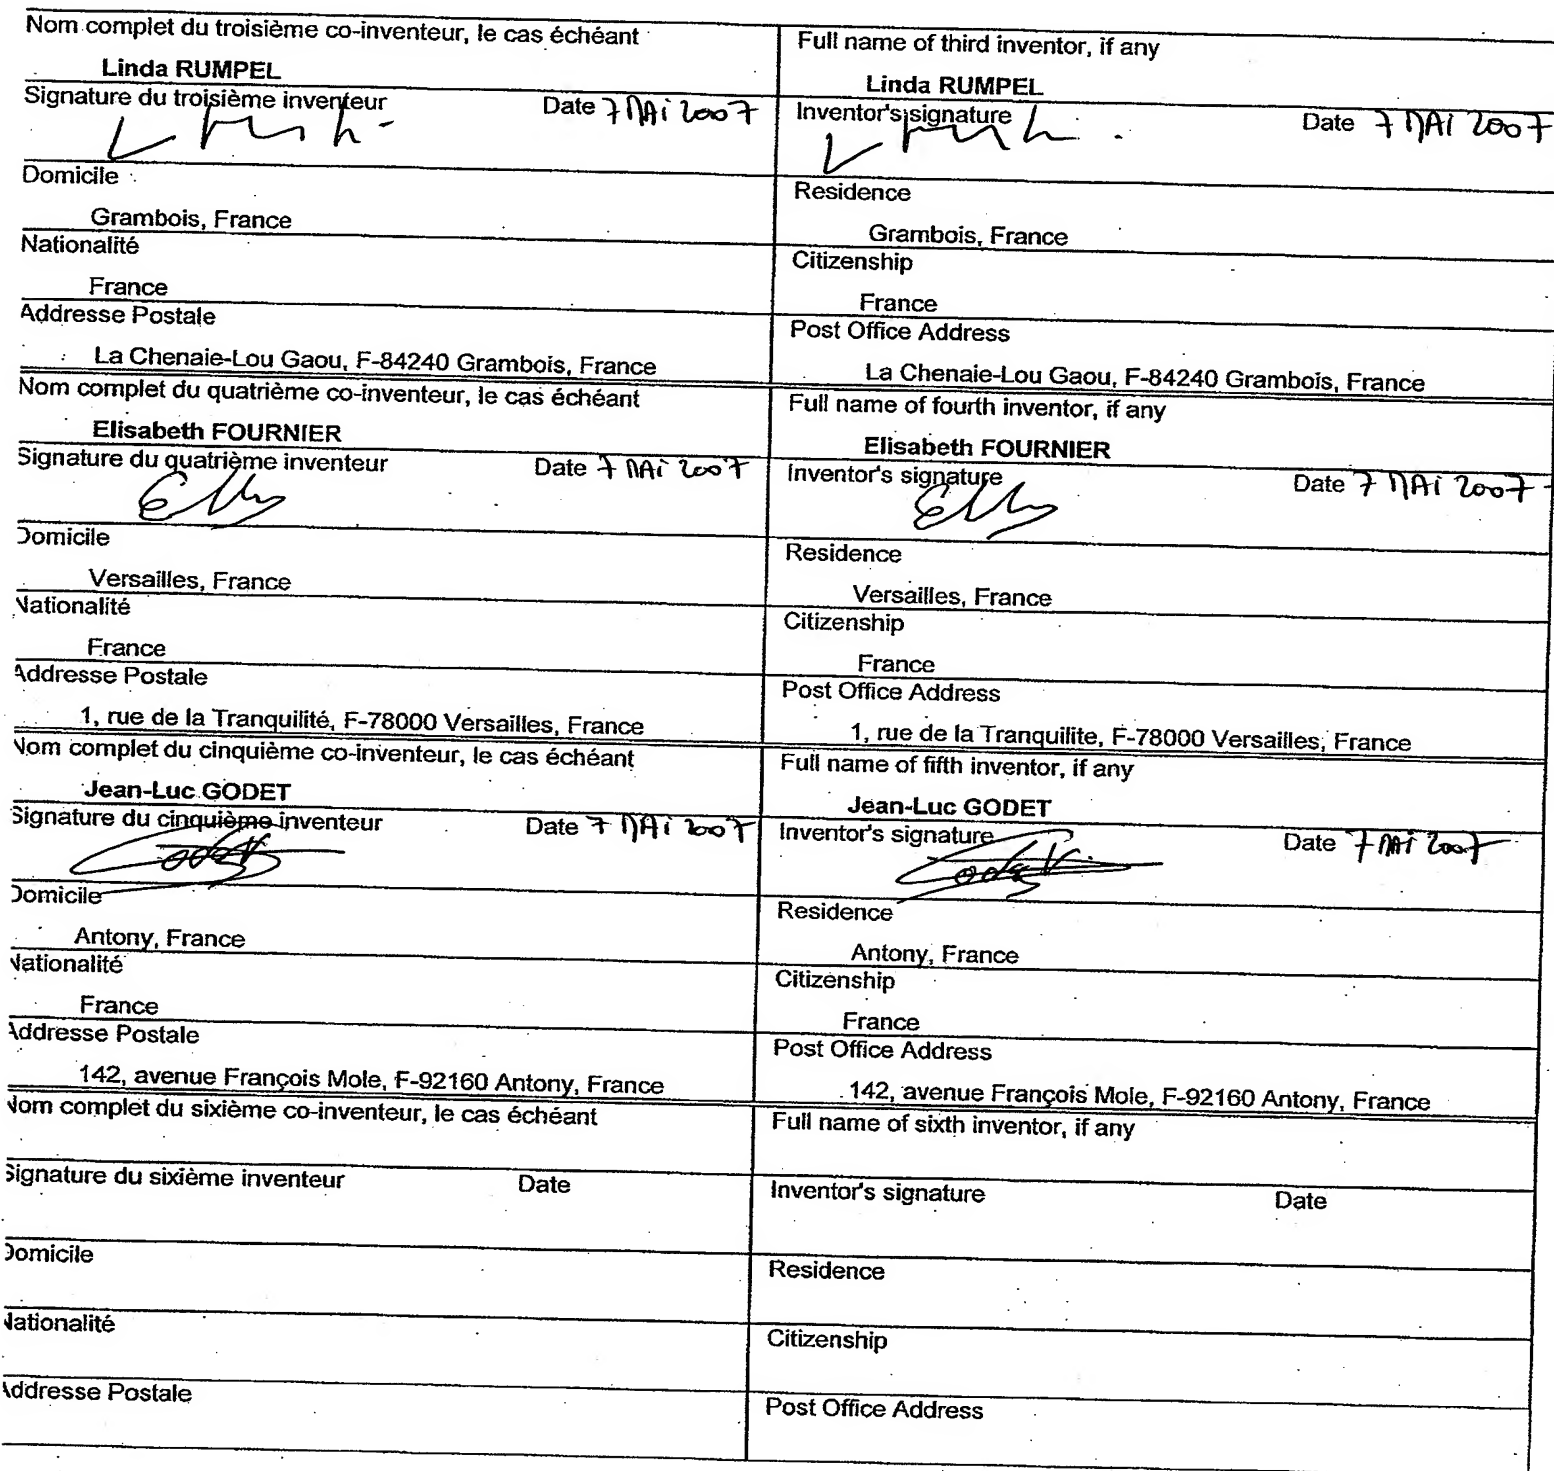 Nom complet du troisième co-inventeur, le cas échéant
Linda RUMPEL
Signature du troisième inventeur Date 7 MAi 2007
Domicile
Grambois, France
Nationalité
France
Addresse Postale
La Chenaie-Lou Gaou, F-84240 Grambois, France
Nom complet du quatrième co-inventeur, le cas échéant
Elisabeth FOURNIER
Signature du quatrième inventeur Date 7 MAi 2007
Domicile
Versailles, France
Nationalité
France
Addresse Postale
1, rue de la Tranquilité, F-78000 Versailles, France
Nom complet du cinquième co-inventeur, le cas échéant
Jean-Luc GODET
Signature du cinquième inventeur Date 7 MAi 2007
Domicile
Antony, France
Nationalité
France
Addresse Postale
142, avenue François Mole, F-92160 Antony, France
Nom complet du sixième co-inventeur, le cas échéant
Signature du sixième inventeur Date
Domicile
Nationalité
Addresse Postale
Full name of third inventor, if any
Linda RUMPEL
Inventor's signature Date 7 MAi 2007
Residence
Grambois, France
Citizenship
France
Post Office Address
La Chenaie-Lou Gaou, F-84240 Grambois, France
Full name of fourth inventor, if any
Elisabeth FOURNIER
Inventor's signature Date 7 MAi 2007
Residence
Versailles, France
Citizenship
France
Post Office Address
1, rue de la Tranquilite, F-78000 Versailles, France
Full name of fifth inventor, if any
Jean-Luc GODET
Inventor's signature Date 7 MAi 2007
Residence
Antony, France
Citizenship
France
Post Office Address
142, avenue François Mole, F-92160 Antony, France
Full name of sixth inventor, if any
Inventor's signature Date
Residence
Citizenship
Post Office Address